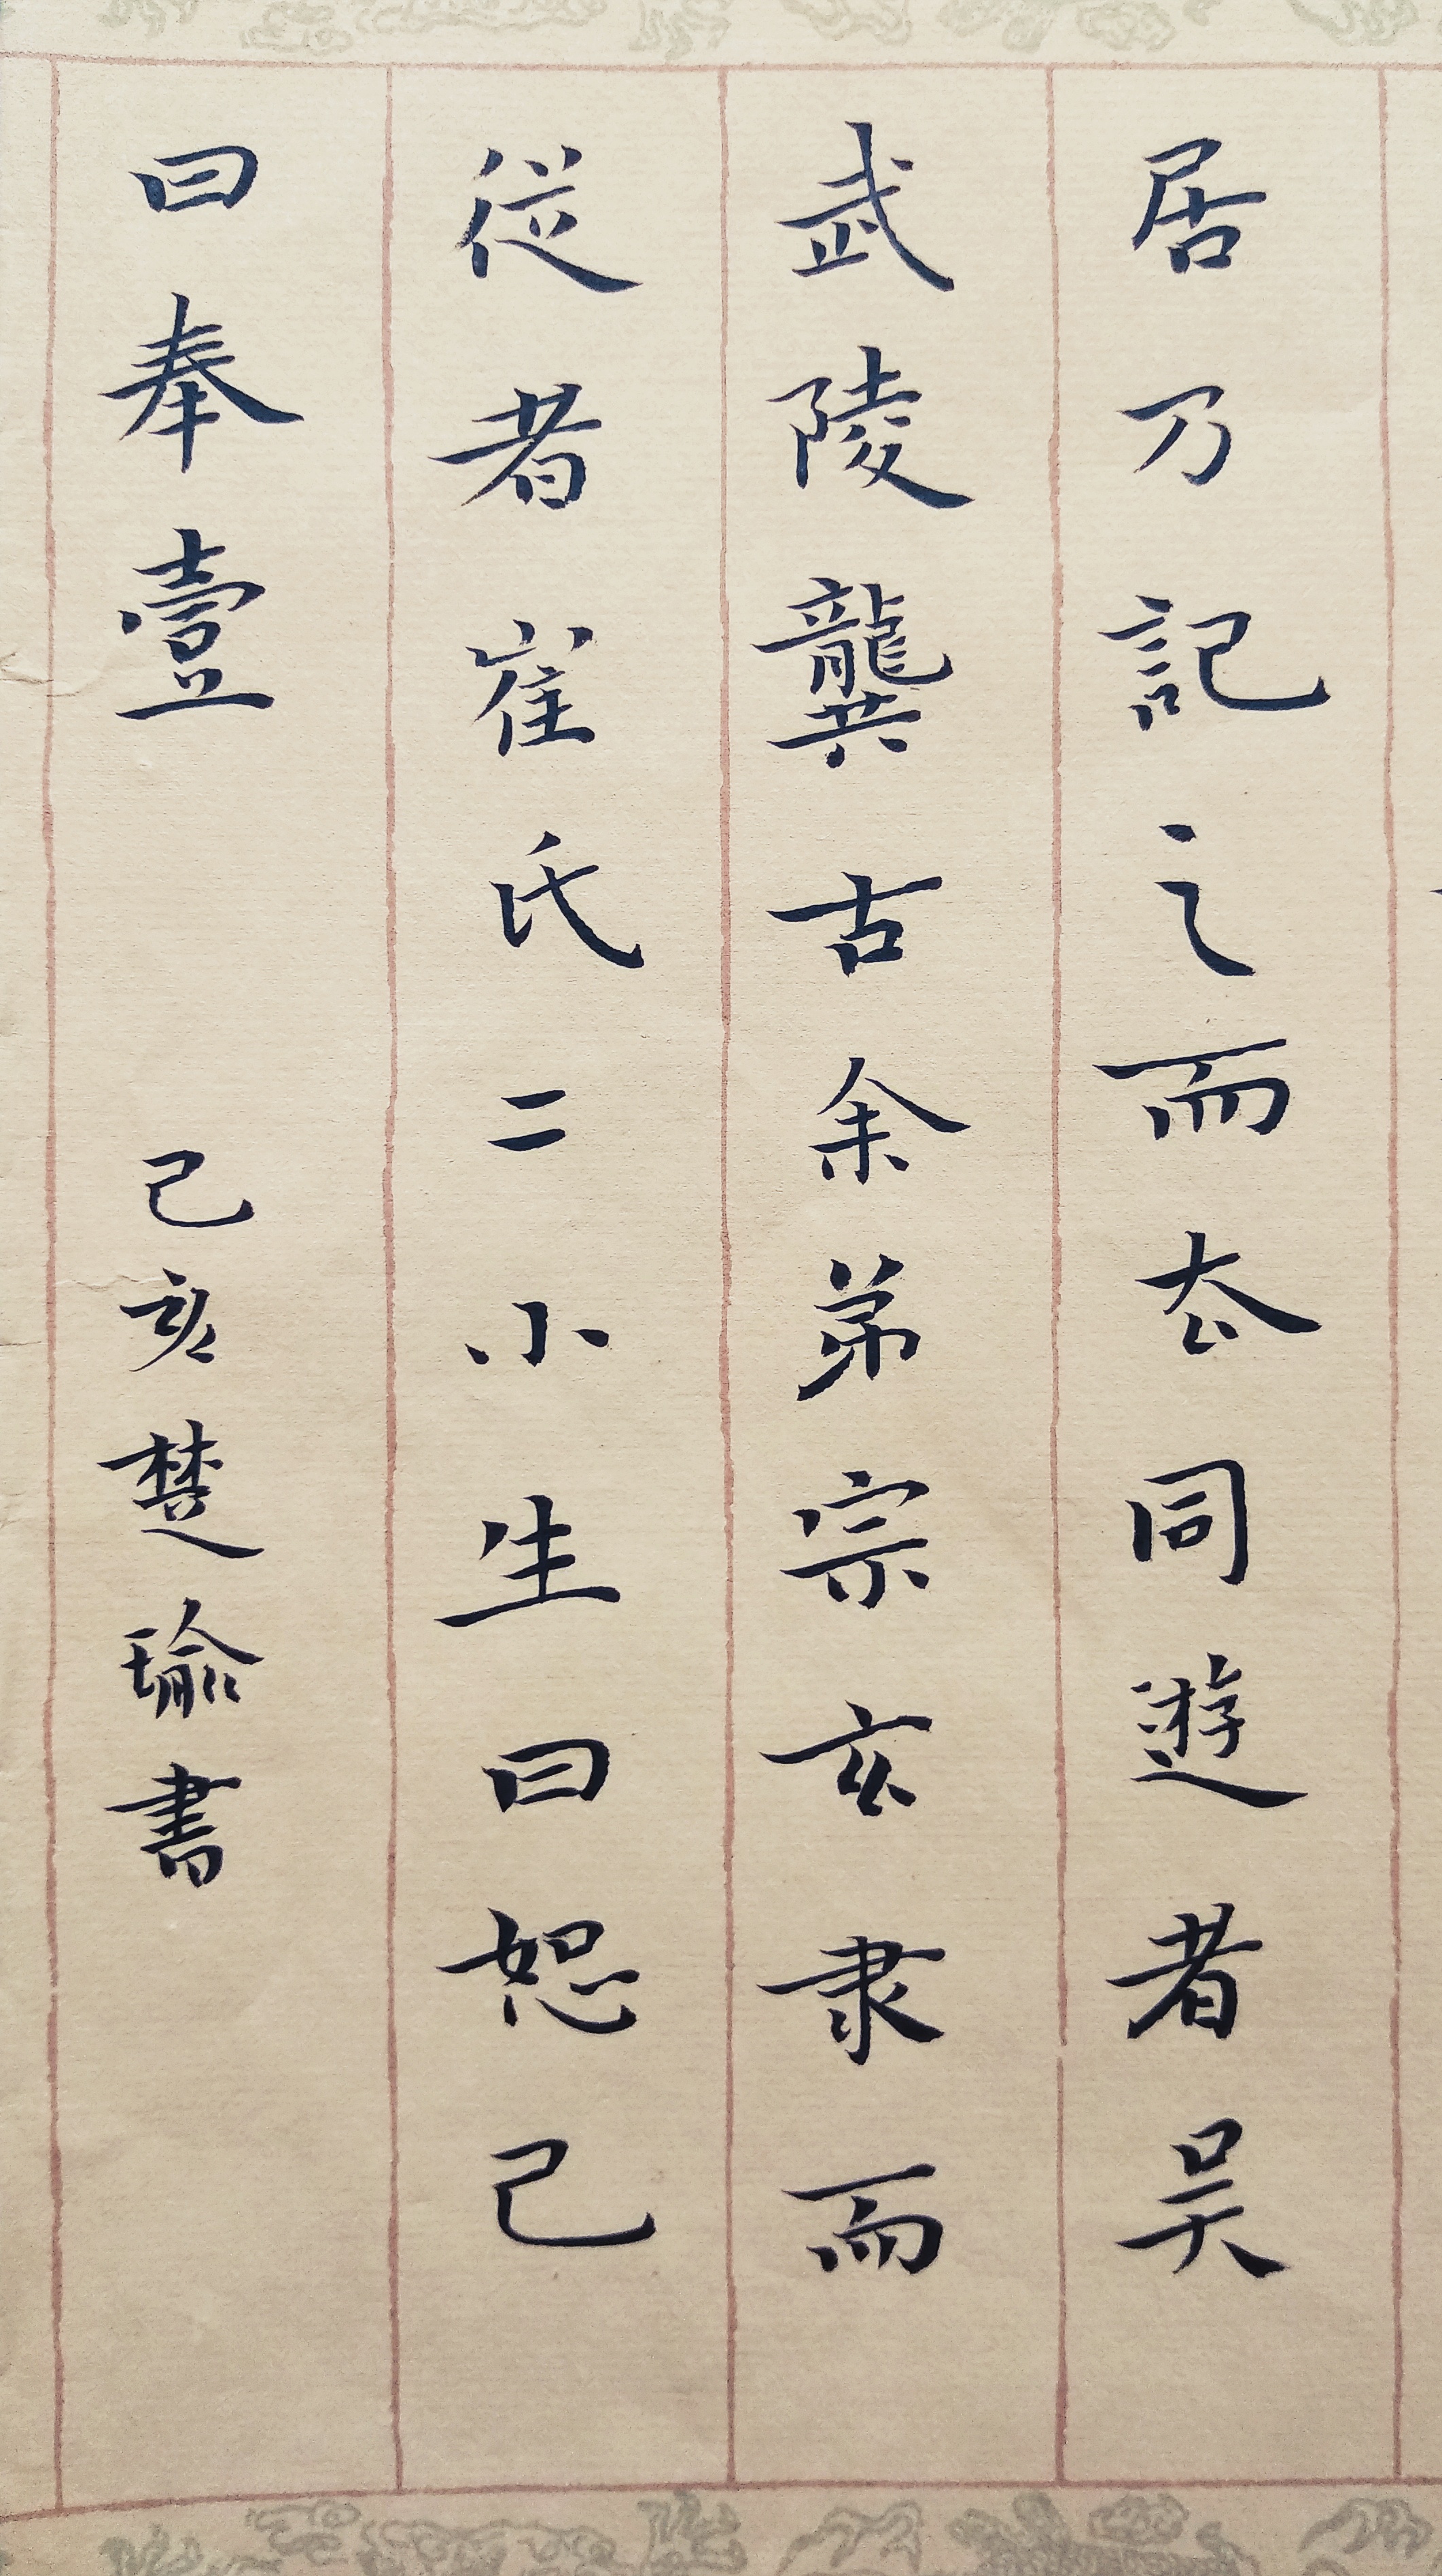 居乃記之而厺同遊者吴
武陵龔古余弟宗玄隶而
従者崔氏二小生曰恕己
曰奉壹 己亥楚瑜書